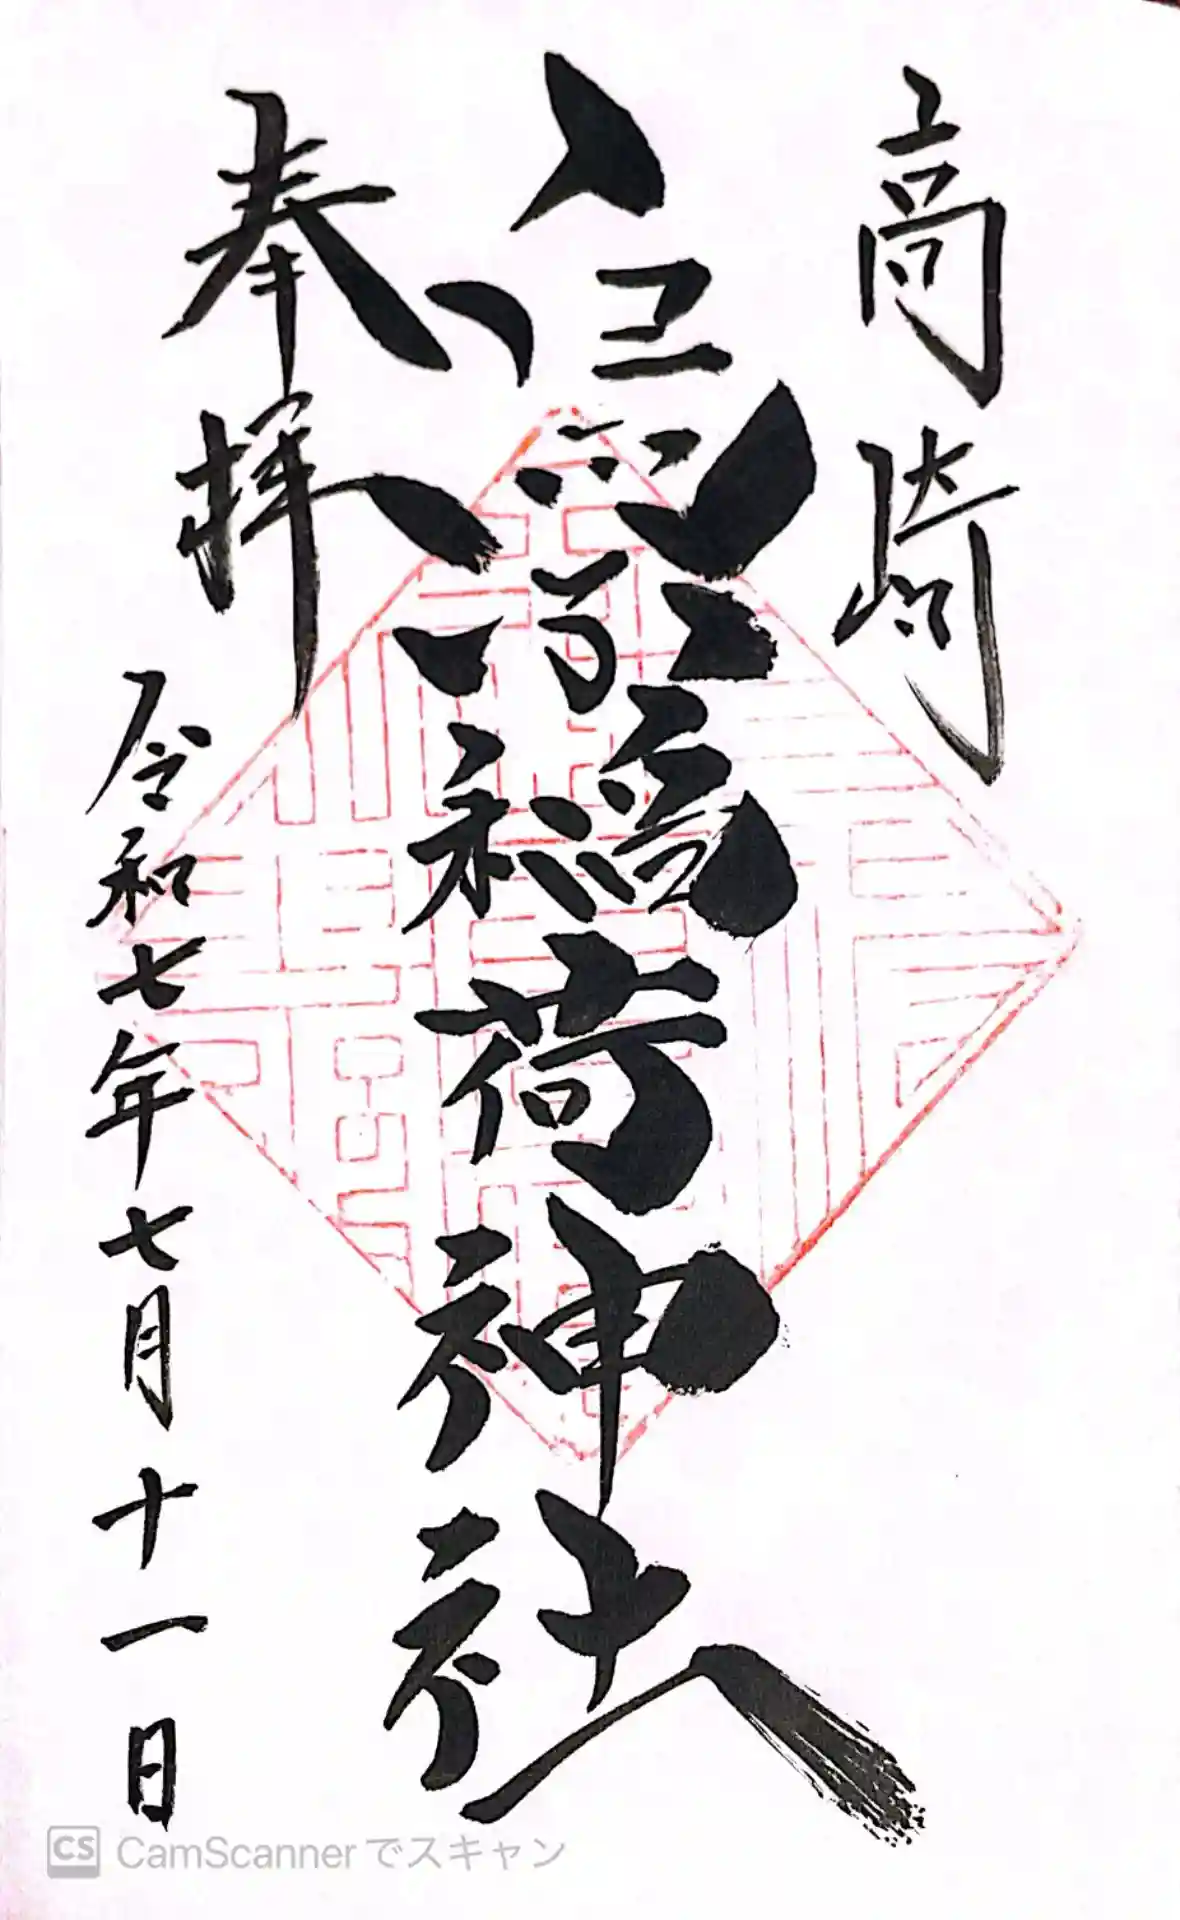 高崎
稲荷神社
奉拝
令和七年七月十一日
CS CamScannerでスキャン